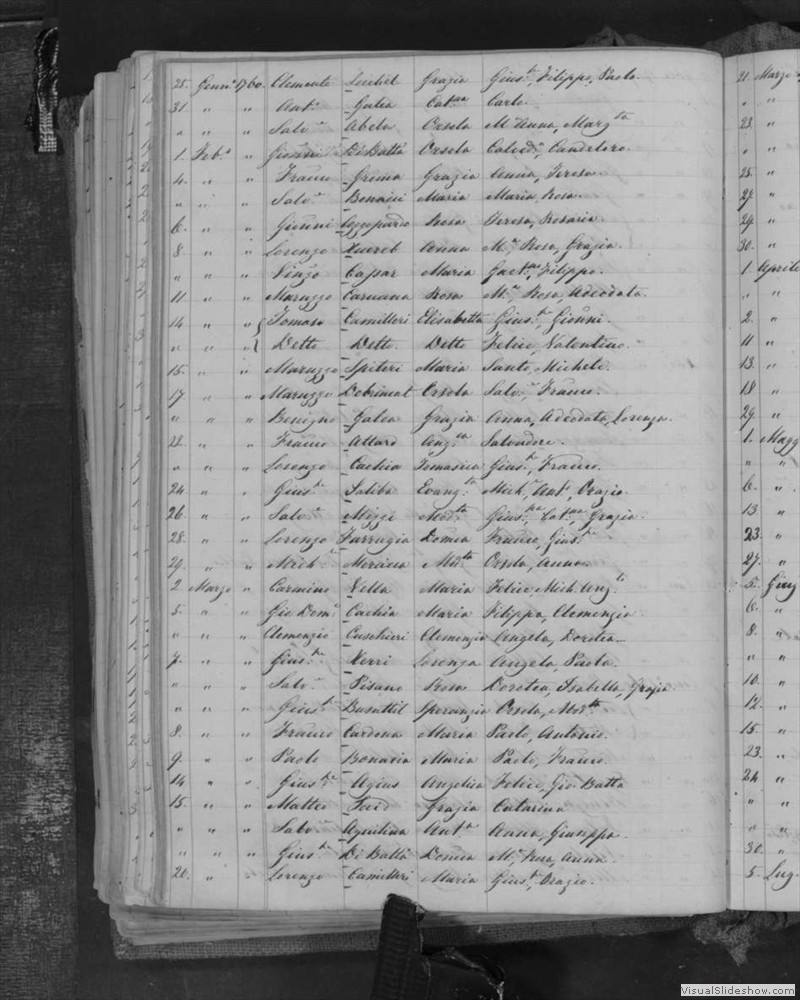 25. Genn.o 1760. Clemente Grazia Gius.e, Filippo, Paolo.
31 " " Ant.o Galea Cat.na Carlo.
" " " Salv.e Abela Orsola M.a Anna, Marg.ta
1. Feb.o " Gionni DiBatta Orsola Calced.a, Candeloro.
4. " " Franco Grima Grazia Anna, Teresa.
" " " Salv.e Bonnici Maria Maria, Rosa.
6. " " Gionni Azzopardo Rosa Teresa, Rosaria.
8. " " Lorenzo Xuereb Anna M.a Rosa, Grazia.
" " " Vinzo Cassar Maria Gaet.na, Filippo.
11 " " Maruzzo Caruana Rosa M.a Rosa, Adeodata.
14 " " Tomaso Camilleri Elisabetta Gius.e, Gionni.
" " " Detto Detto. Detto Felice, Valentino.
15. " " Maruzzo Spiteri Maria Santo, Michele.
17 " " Maruzzo Debrincat Orsola Salv.e, Franco.
" " " Benigno Galea Grazia Anna, Adeodata, Lorenza.
22. " " Franco Attard Ang.ca Salvadore.
" " " Lorenzo Cachia Tomasica Gius.e, Franco.
24 " " Gius.e Saliba Evang.ta Mich.e, Ant.o, Orazio.
26. " " Salv.e Mizzi Mod.ta Gius.pa, Cat.na, Grazia.
28. " " Lorenzo Farrugia Domca Franco, Gius.e
29. " " Mich.e Mercieca Mod.ta Orsola, Anna.
2 Marzo " Carmino Vella Maria Felice, Mich.Ang.lo
5. " " Gio Dom.o Cachia Maria Filippa, Clemenzia.
" " " Clemenzio Cuschieri Clemenzia Angela, Dorotea.
7. " " Gius.e Xerri Lorenza Angelo, Paolo.
" " " Salv.e Pisano Rosa Dorotea, Isabella, Grazia.
" " " Gius.e Busuttil Speranzia Orsola, Mod.ta
8. " " Franco Cardona Maria Paolo, Antonio.
9. " " Paolo Bonavia Maria Paolo, Franco.
14 " " Gius.e Agius Angelica Felice, Gio Batta
15. " " Matteo Said Grazia Catarina
" " " Salv.e Aquilina Ant.a Anna, Giuseppa.
" " " Gius.e DiBatta Domca M.a Rosa, Anna.
20. " " Lorenzo Camilleri Maria Gius.e, Orazio.
21. Marzo
" "
23. "
" "
25. "
27. "
29. "
30. "
1. Aprile
" "
2. "
11 "
13. "
18 "
29. "
1. Magg
" "
6. "
13. "
23. "
27. "
5. Giug
6. "
8. "
" "
10. "
12. "
15. "
23. "
24 "
" "
" "
30. "
5. Lug.
VisualSlideshow.com